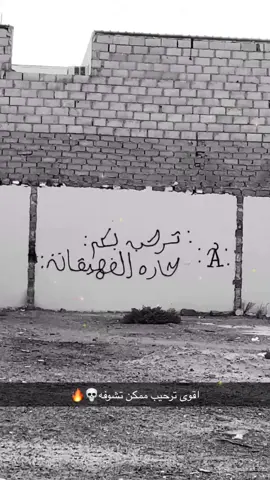 ترحب بكم
حاره الفهيقانة
A
اقوى ترحيب ممكن تشوفه💀🔥